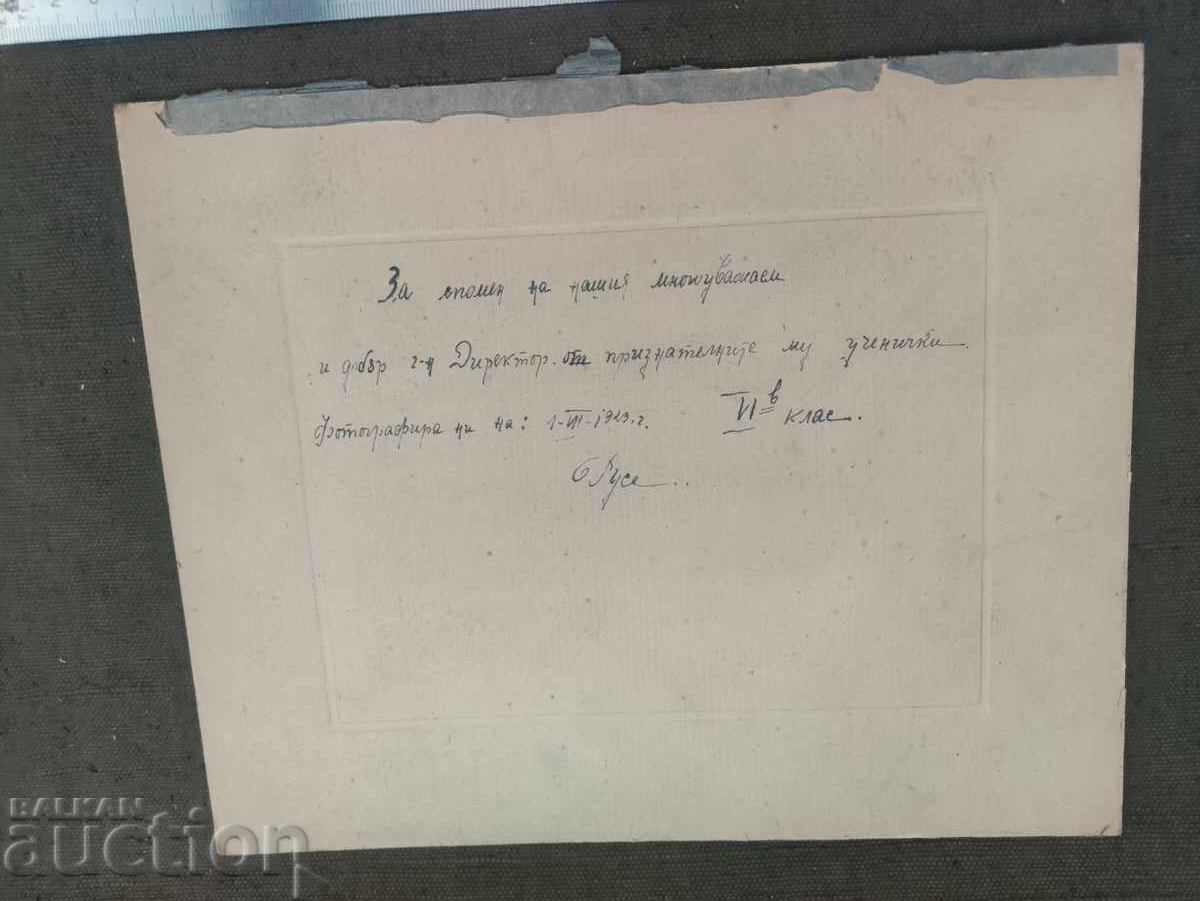 За спомен на нашия многоуважаем
и добър г-н Директор. от признателните му ученички.
Фотографирани на: 1-VII-1923.г. VI в клас.
Русе..
BALKAN
auction